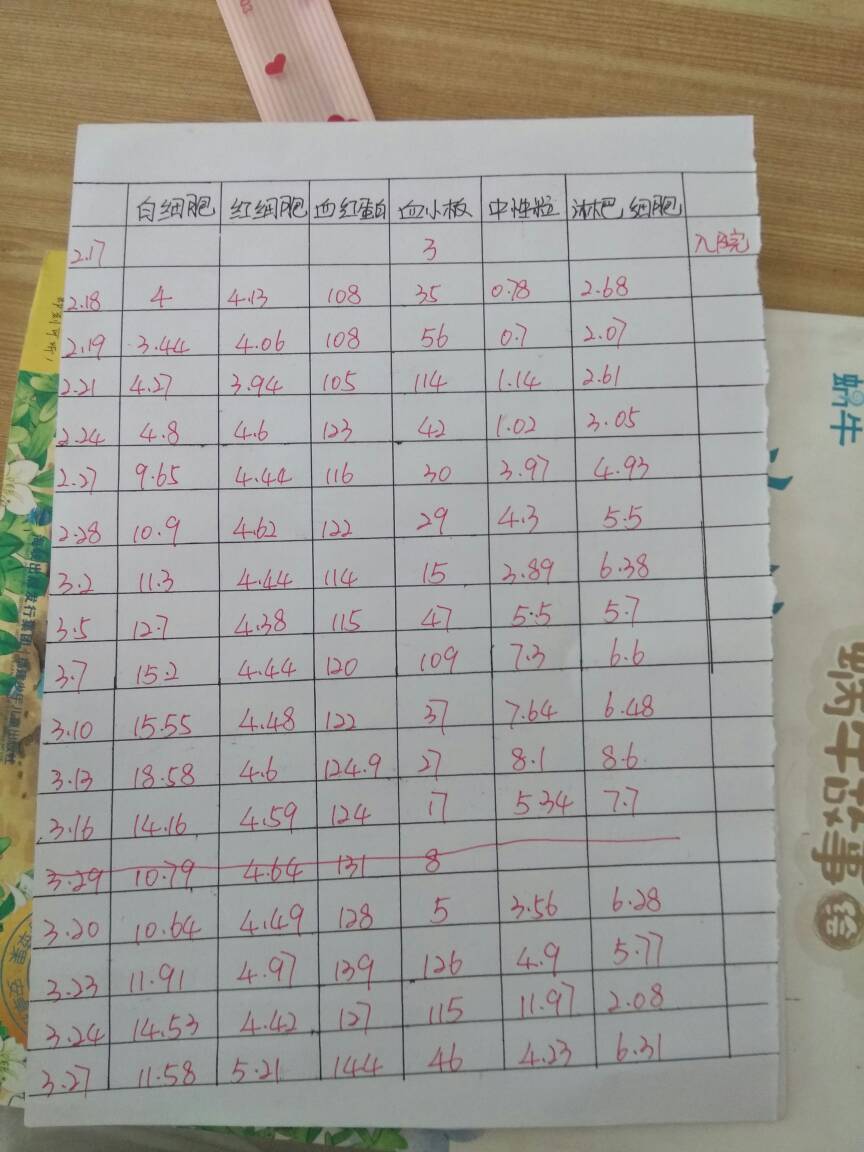 白细胞 红细胞 血红蛋白 血小板 中性粒 淋杷细胞
2.17 3 入院
2.18 4 4.13 108 35 0.78 2.68
2.19 3.44 4.06 108 56 0.7 2.07
2.21 4.27 3.94 105 114 1.14 2.61
2.24 4.8 4.6 123 42 1.02 3.05
2.27 9.65 4.44 116 30 3.97 4.93
2.28 10.9 4.62 122 29 4.3 5.5
3.2 11.3 4.44 114 15 3.89 6.38
3.5 12.7 4.38 115 47 5.5 5.7
3.7 15.2 4.44 120 109 7.3 6.6
3.10 15.55 4.48 122 37 7.64 6.48
3.13 18.58 4.6 124.9 27 8.1 8.6
3.16 14.16 4.59 124 17 5.34 7.7
3.29 10.79 4.64 131 8
3.20 10.64 4.49 128 5 3.56 6.28
3.23 11.91 4.97 139 126 4.9 5.77
3.24 14.53 4.42 127 115 11.97 2.08
3.27 11.58 5.21 144 46 4.23 6.31
蜗牛
蜗牛故事绘